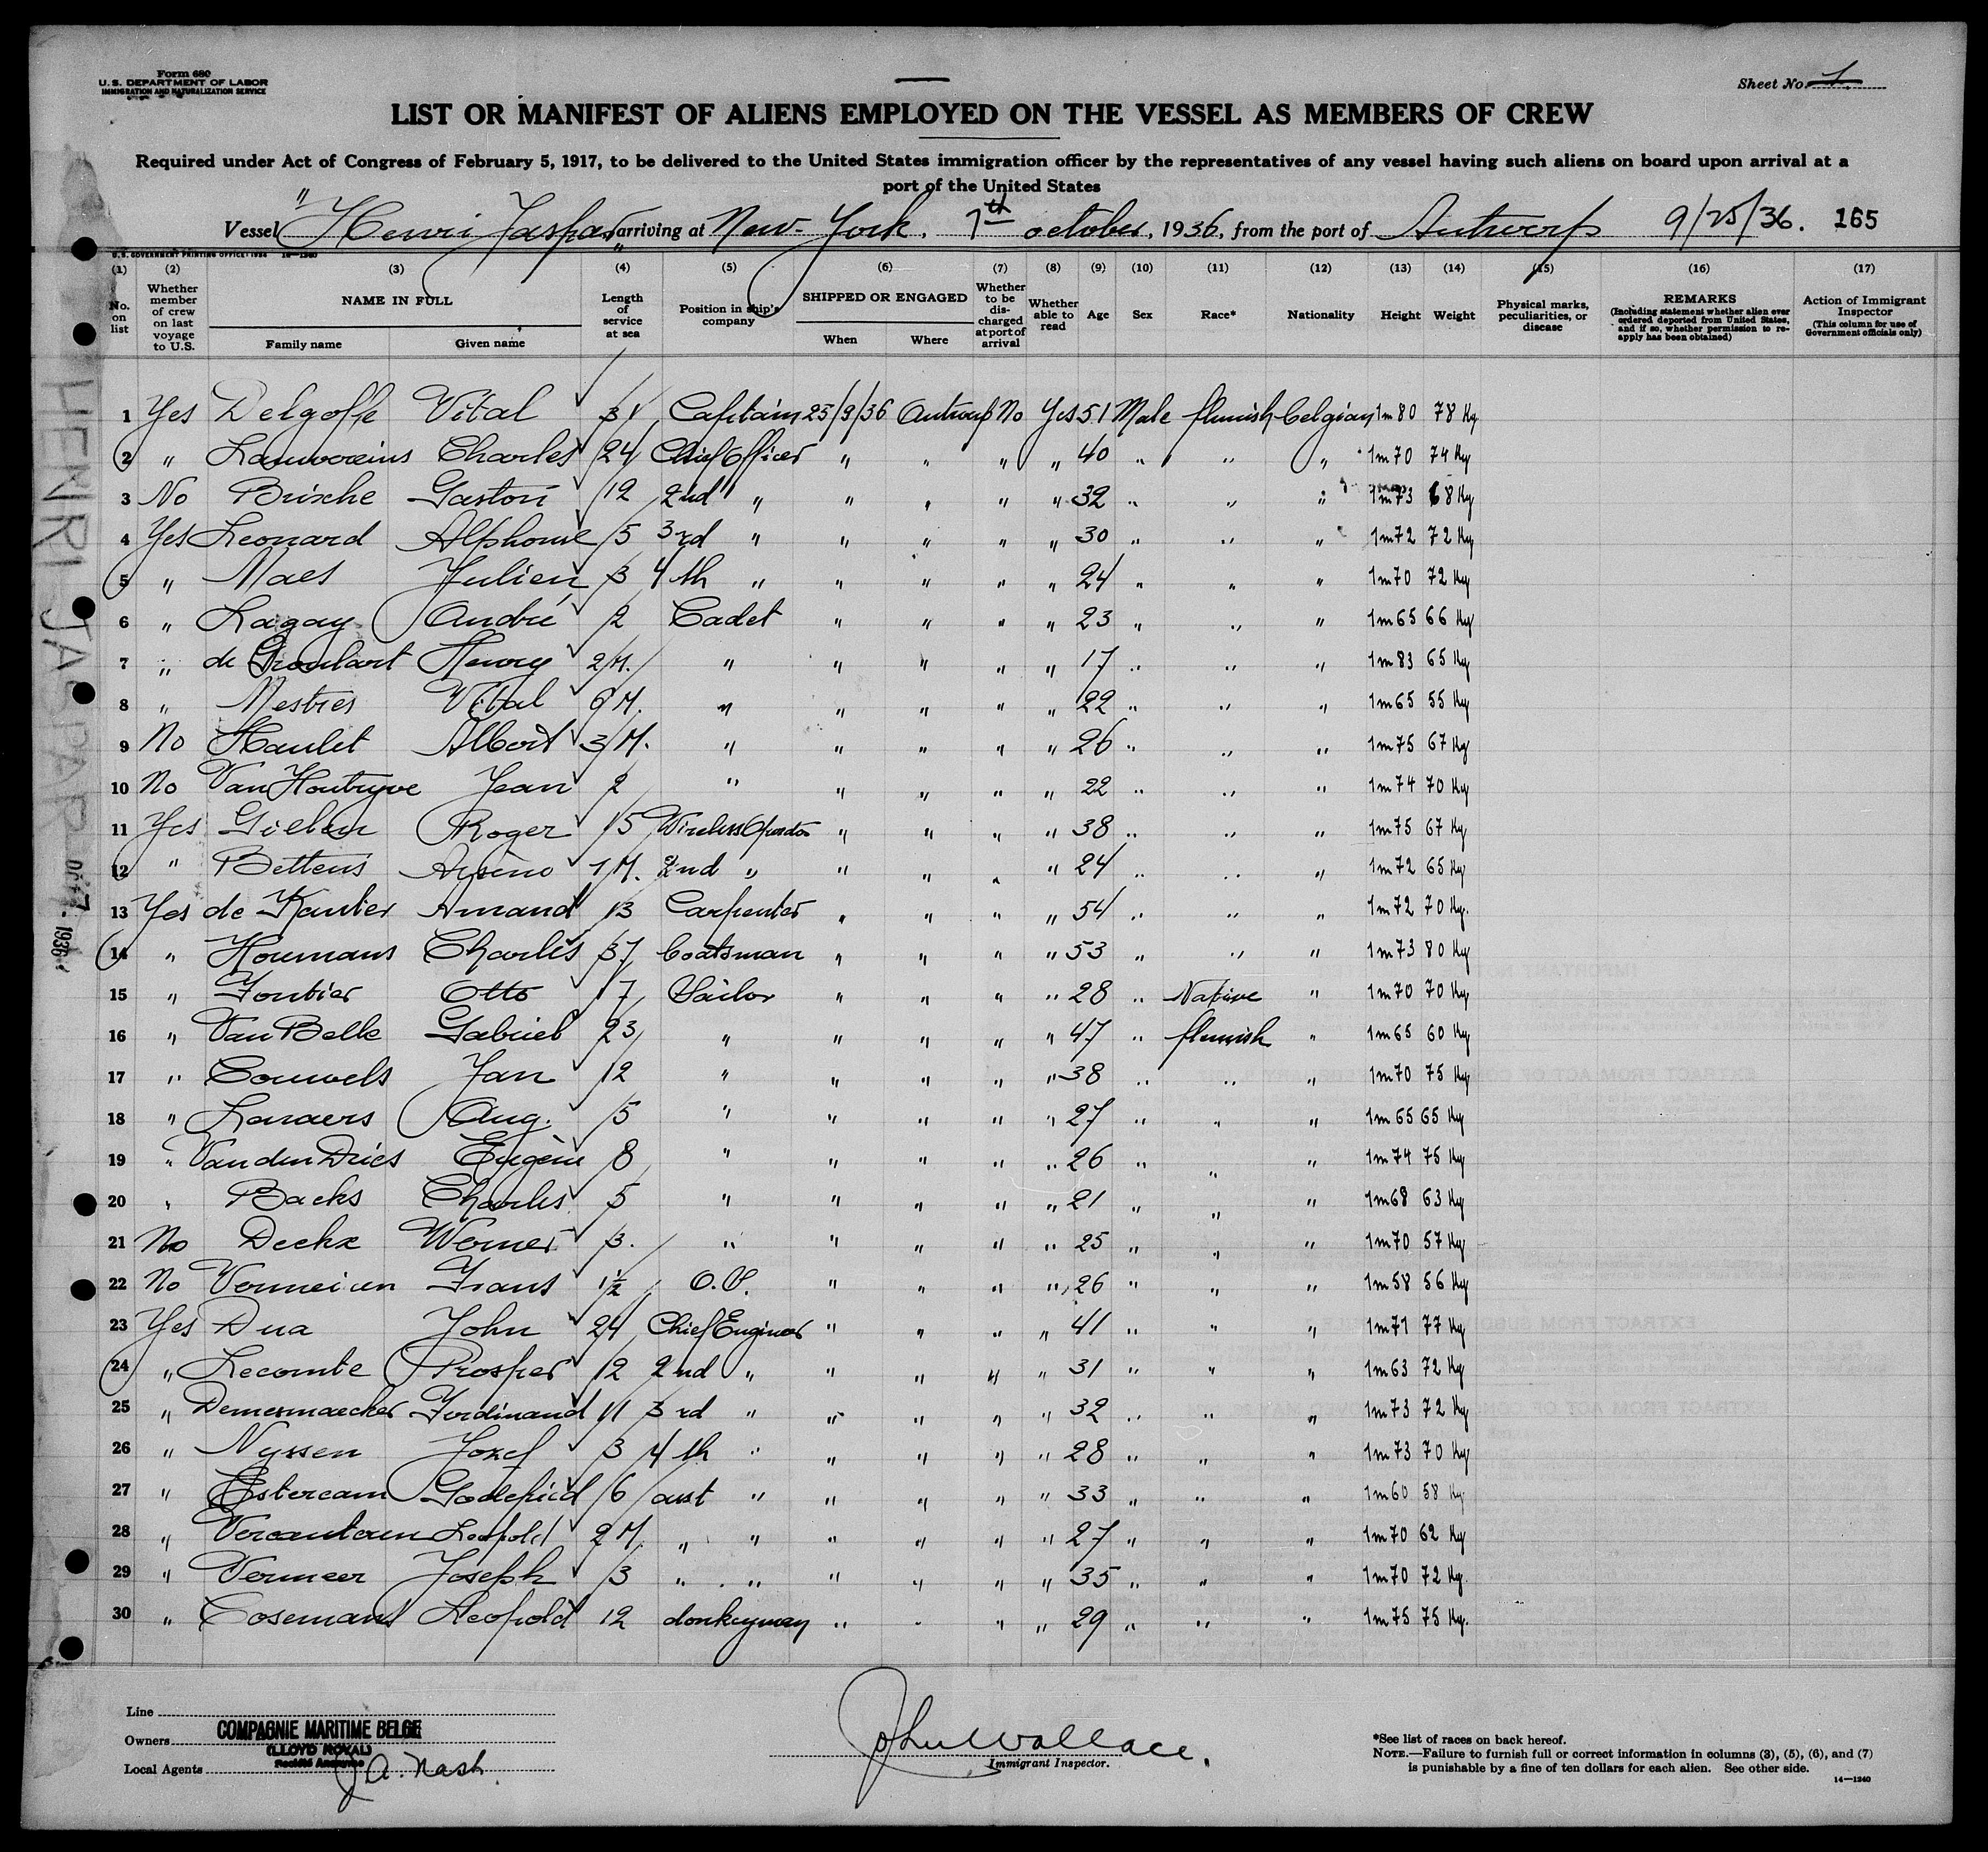 Form 680
U. S. DEPARTMENT OF LABOR
IMMIGRATION AND NATURALIZATION SERVICE
Sheet No. 1
LIST OR MANIFEST OF ALIENS EMPLOYED ON THE VESSEL AS MEMBERS OF CREW
Required under Act of Congress of February 5, 1917, to be delivered to the United States immigration officer by the representatives of any vessel having such aliens on board upon arrival at a
port of the United States
Vessel "Henri Jaspar" arriving at New-York, 7th october, 1936, from the port of Antwerp 9/25/36. 165
U. S. GOVERNMENT PRINTING OFFICE: 1934 14—1240
(1) (2) (3) (4) (5) (6) (7) (8) (9) (10) (11) (12) (13) (14) (15) (16) (17)
No. on list
Whether member of crew on last voyage to U.S.
NAME IN FULL
Family name Given name
Length of service at sea
Position in ship's company
SHIPPED OR ENGAGED
When Where
Whether to be discharged at port of arrival
Whether able to read
Age
Sex
Race*
Nationality
Height
Weight
Physical marks, peculiarities, or disease
REMARKS
(Including statement whether alien ever ordered deported from United States, and if so, whether permission to re-apply has been obtained)
Action of Immigrant Inspector
(This column for use of Government officials only)
1 Yes Delgoffe Vital 31 Captain 25/9/36 Antwerp No Yes 51 Male flemish belgian 1m80 78 Kg
2 " Charles 24 Chief Officer " " " " 40 " " " 1m70 74 Kg
3 No Brixhe Gaston 12 2nd " " " " " 32 " " " 1m73 68 Kg
4 Yes Leonard Alphonse 5 3rd " " " " " 30 " " " 1m72 72 Kg
5 " Maes Julien 3 4th " " " " " 24 " " " 1m70 72 Kg
6 " Lagay André 2 Cadet " " " " 23 " " " 1m65 66 Kg
7 " de Henry 2 M. " " " " " 17 " " " 1m83 65 Kg
8 " Mestres Vital 6 M. " " " " " 22 " " " 1m65 55 Kg
9 No Haulet Albert 3 M. " " " " " 26 " " " 1m75 67 Kg
10 No Van Houtryve Jean 2 " " " " " 22 " " " 1m74 70 Kg
11 Yes Gielen Roger 15 Wireless Operator " " " " 38 " " " 1m75 67 Kg
12 " Bettens 7 M. 2nd " " " " " 24 " " " 1m72 65 Kg
13 Yes de Kantier Amand 13 Carpenter " " " " 54 " " " 1m72 70 Kg.
14 " Houmans Charles 37 boatsman " " " " 53 " " " 1m73 80 Kg
15 " Otto 17 Sailor " " " " 28 " Native " 1m70 70 Kg
16 " Van Belle Gabriel 23 " " " " " 47 " flemish " 1m65 60 Kg
17 " Couwels Jan 12 " " " " " 38 " " " 1m70 75 Kg
18 " Lanaers Aug. 5 " " " " " 27 " " " 1m65 65 Kg
19 " Van den Dries Eugène 8 " " " " " 26 " " " 1m74 75 Kg
20 " Backs Charles 5 " " " " " 21 " " " 1m68 63 Kg
21 No Deckx Werner 3. " " " " " 25 " " " 1m70 57 Kg
22 No Frans 1½ O.S. " " " " 26 " " " 1m58 56 Kg
23 Yes Dua John 24 Chief Engineer " " " " 41 " " " 1m71 77 Kg
24 " Lecomte Prosper 12 2nd " " " " " 31 " " " 1m63 72 Kg
25 " Demesmaecker Ferdinand 11 3rd " " " " " 32 " " " 1m73 72 Kg
26 " Nyssen Jozef 3 4th " " " " " 28 " " " 1m73 70 Kg
27 " Estercam Godefried 6 asst " " " " " 33 " " " 1m60 58 Kg
28 " Vercauteren Leopold 2 M " " " " " " 27 " " " 1m70 62 Kg
29 " Vermeer Joseph 3 " " " " " " 35 " " " 1m70 72 Kg.
30 " Cosemans Leopold 12 donkeyman " " " " 29 " " " 1m75 75 Kg.
HENRI-JASPAR
OCT 7 - 1936
Line
Owners COMPAGNIE MARITIME BELGE
(LLOYD ROYAL)
Local Agents J. A. Nash
John Wallace.
Immigrant Inspector.
*See list of races on back hereof.
NOTE.—Failure to furnish full or correct information in columns (3), (5), (6), and (7)
is punishable by a fine of ten dollars for each alien. See other side.
14—1240